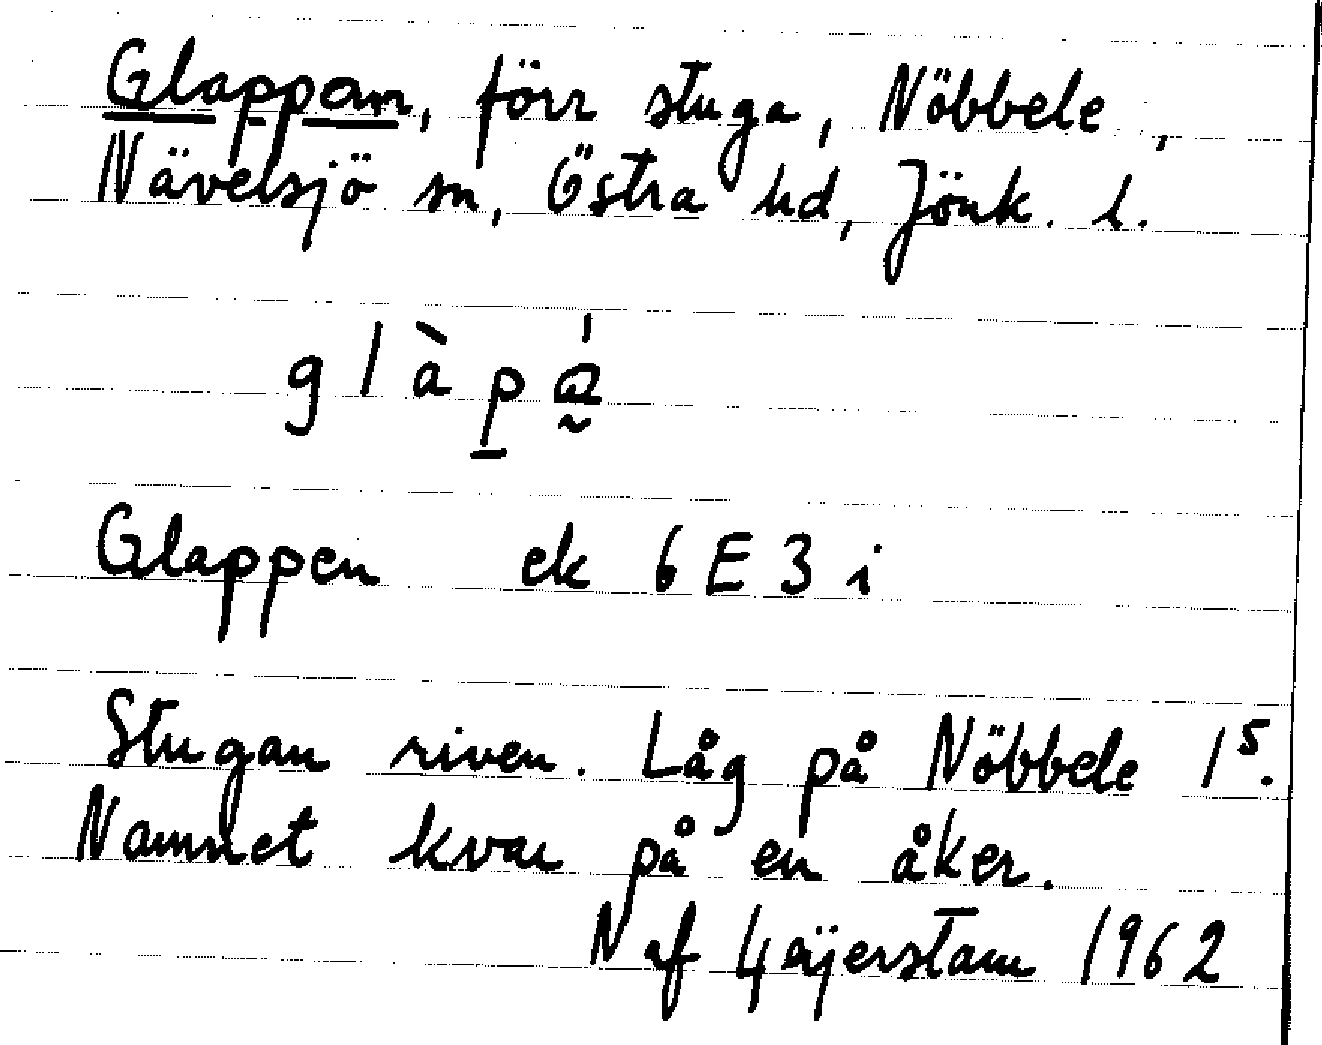 Glappen, förr stuga, Nöbbele,
Nävelsjö sn, Östra hd, Jönk. l.
Glappen ek 6E3i
Stugan riven. Låg på Nöbbele 1⁵.
Namnet kvar på en åker.
N af Geijerstam 1962